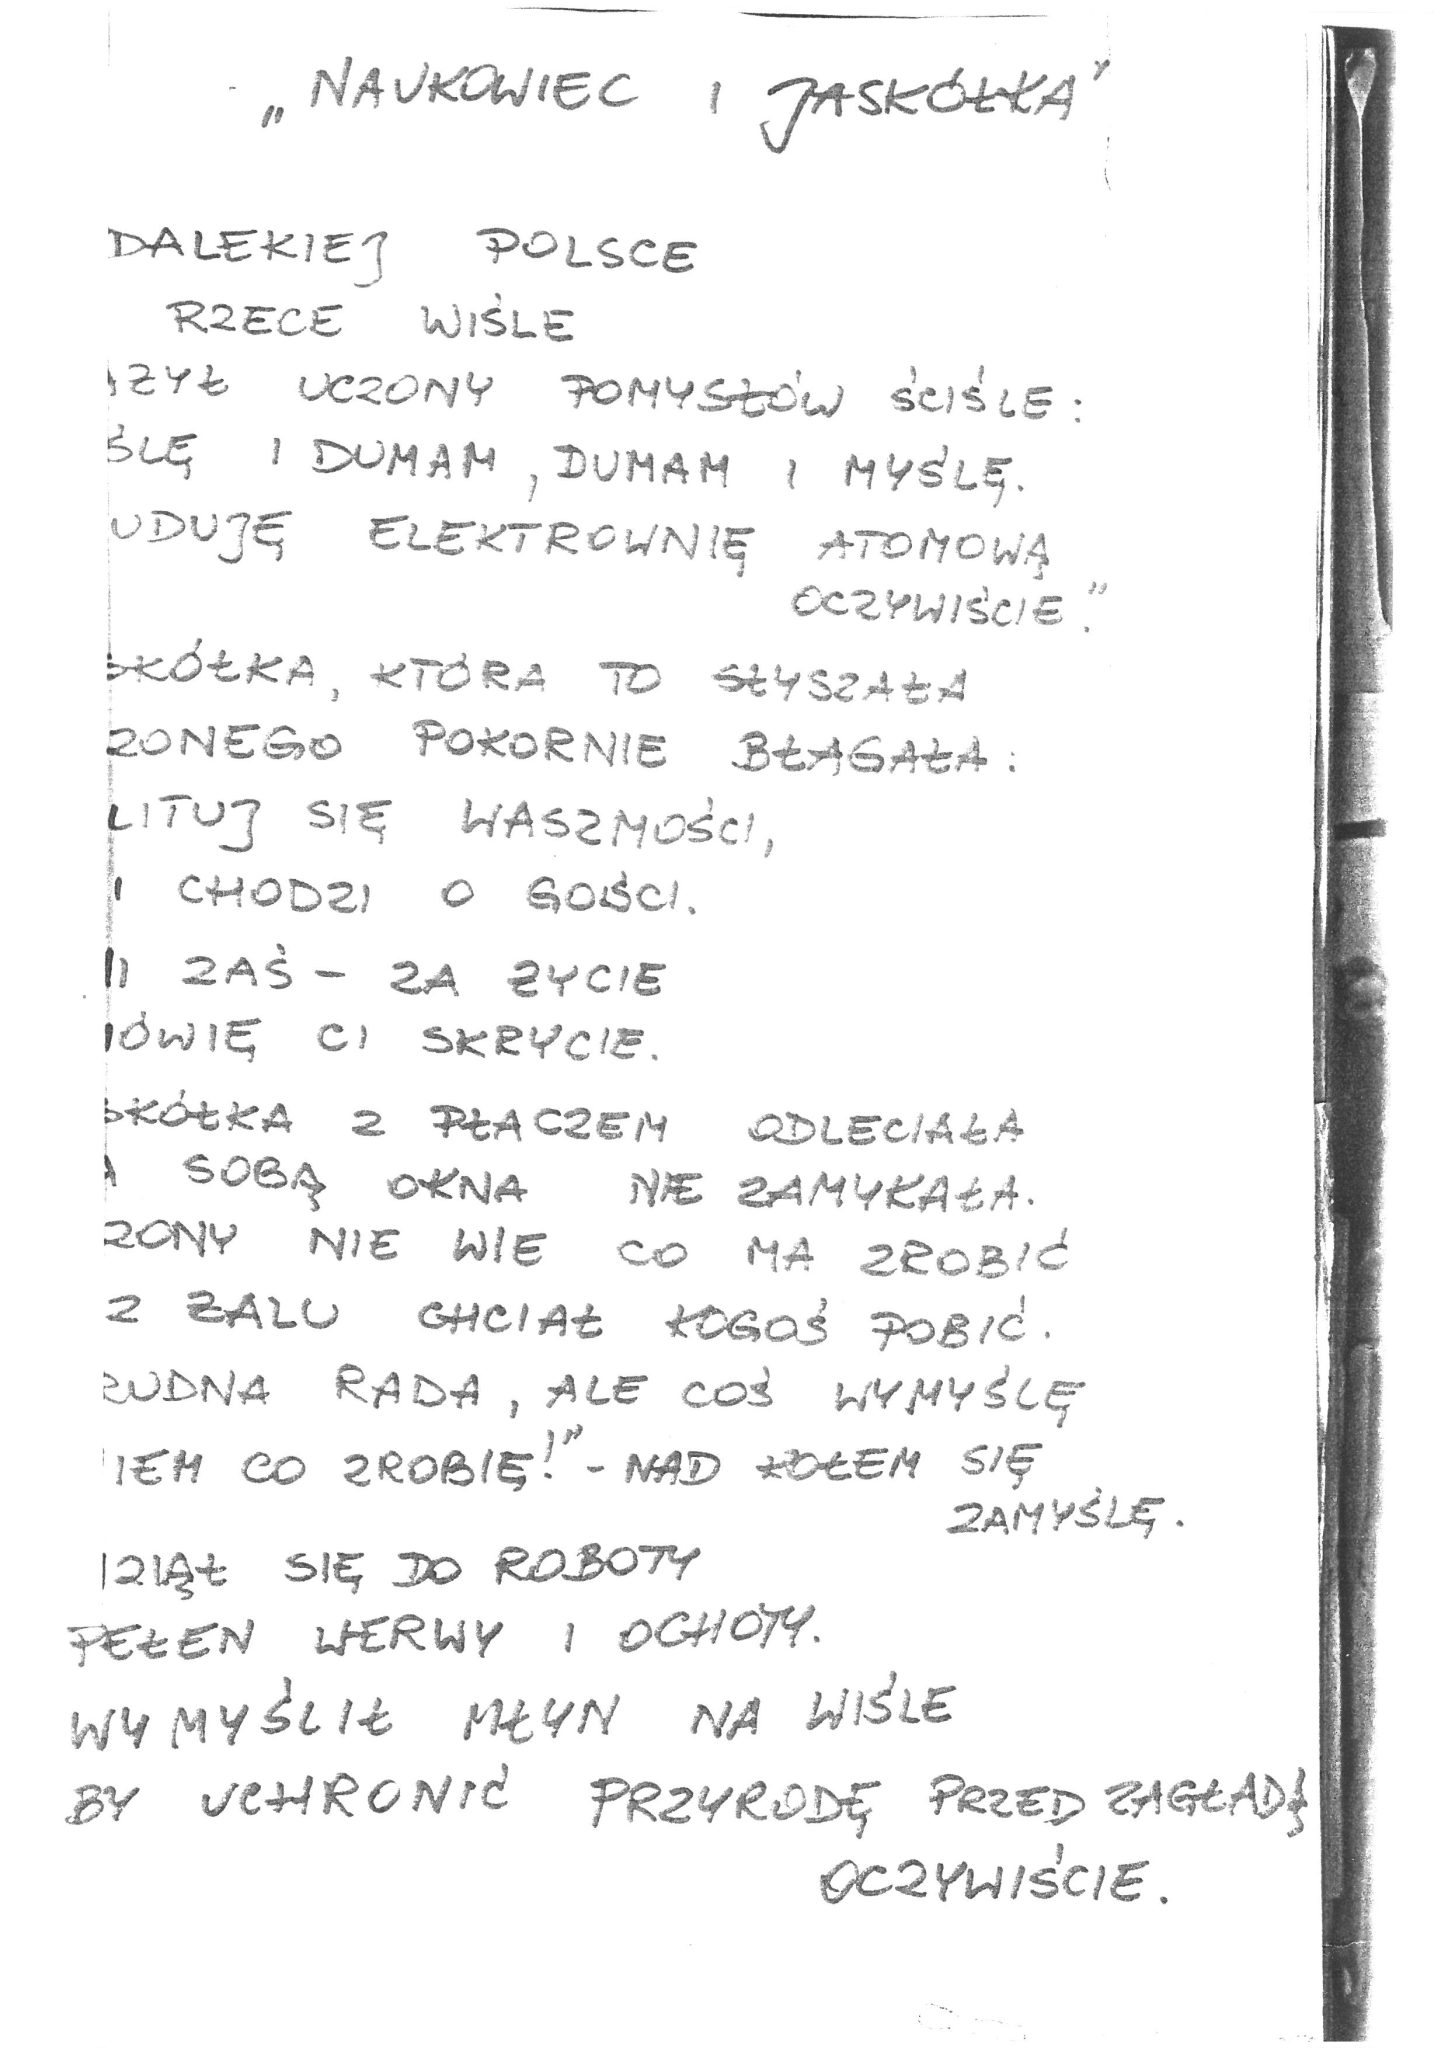 „NAUKOWIEC I JASKÓŁKA”
DALEKIEJ POLSCE
RZECE WIŚLE
UCZONY POMYSŁÓW ŚCIŚLE:
ŚLĘ I DUMAM, DUMAM I MYŚLĘ.
UDUJĘ ELEKTROWNIĘ ATOMOWĄ
OCZYWIŚCIE.”
SKÓŁKA, KTÓRA TO SŁYSZAŁA
ZONEGO POKORNIE BŁAGAŁA:
LITUJ SIĘ WASZMOŚCI,
I CHODZI O GOŚCI.
ZAŚ - ZA ŻYCIE
ÓWIĘ CI SKRYCIE.
SKÓŁKA Z PŁACZEM ODLECIAŁA
A SOBĄ OKNA NIE ZAMYKAŁA.
ZONY NIE WIE CO MA ZROBIĆ
Z ŻALU CHCIAŁ KOGOŚ POBIĆ.
RUDNA RADA, ALE COŚ WYMYŚLĘ
IEM CO ZROBIĘ!” - NAD KOŁEM SIĘ
ZAMYŚLĘ.
ZIĄŁ SIĘ DO ROBOTY
PEŁEN WERWY I OCHOTY.
WYMYŚLIŁ MŁYN NA WIŚLE
BY UCHRONIĆ PRZYRODĘ PRZED ZAGŁADĄ
OCZYWIŚCIE.